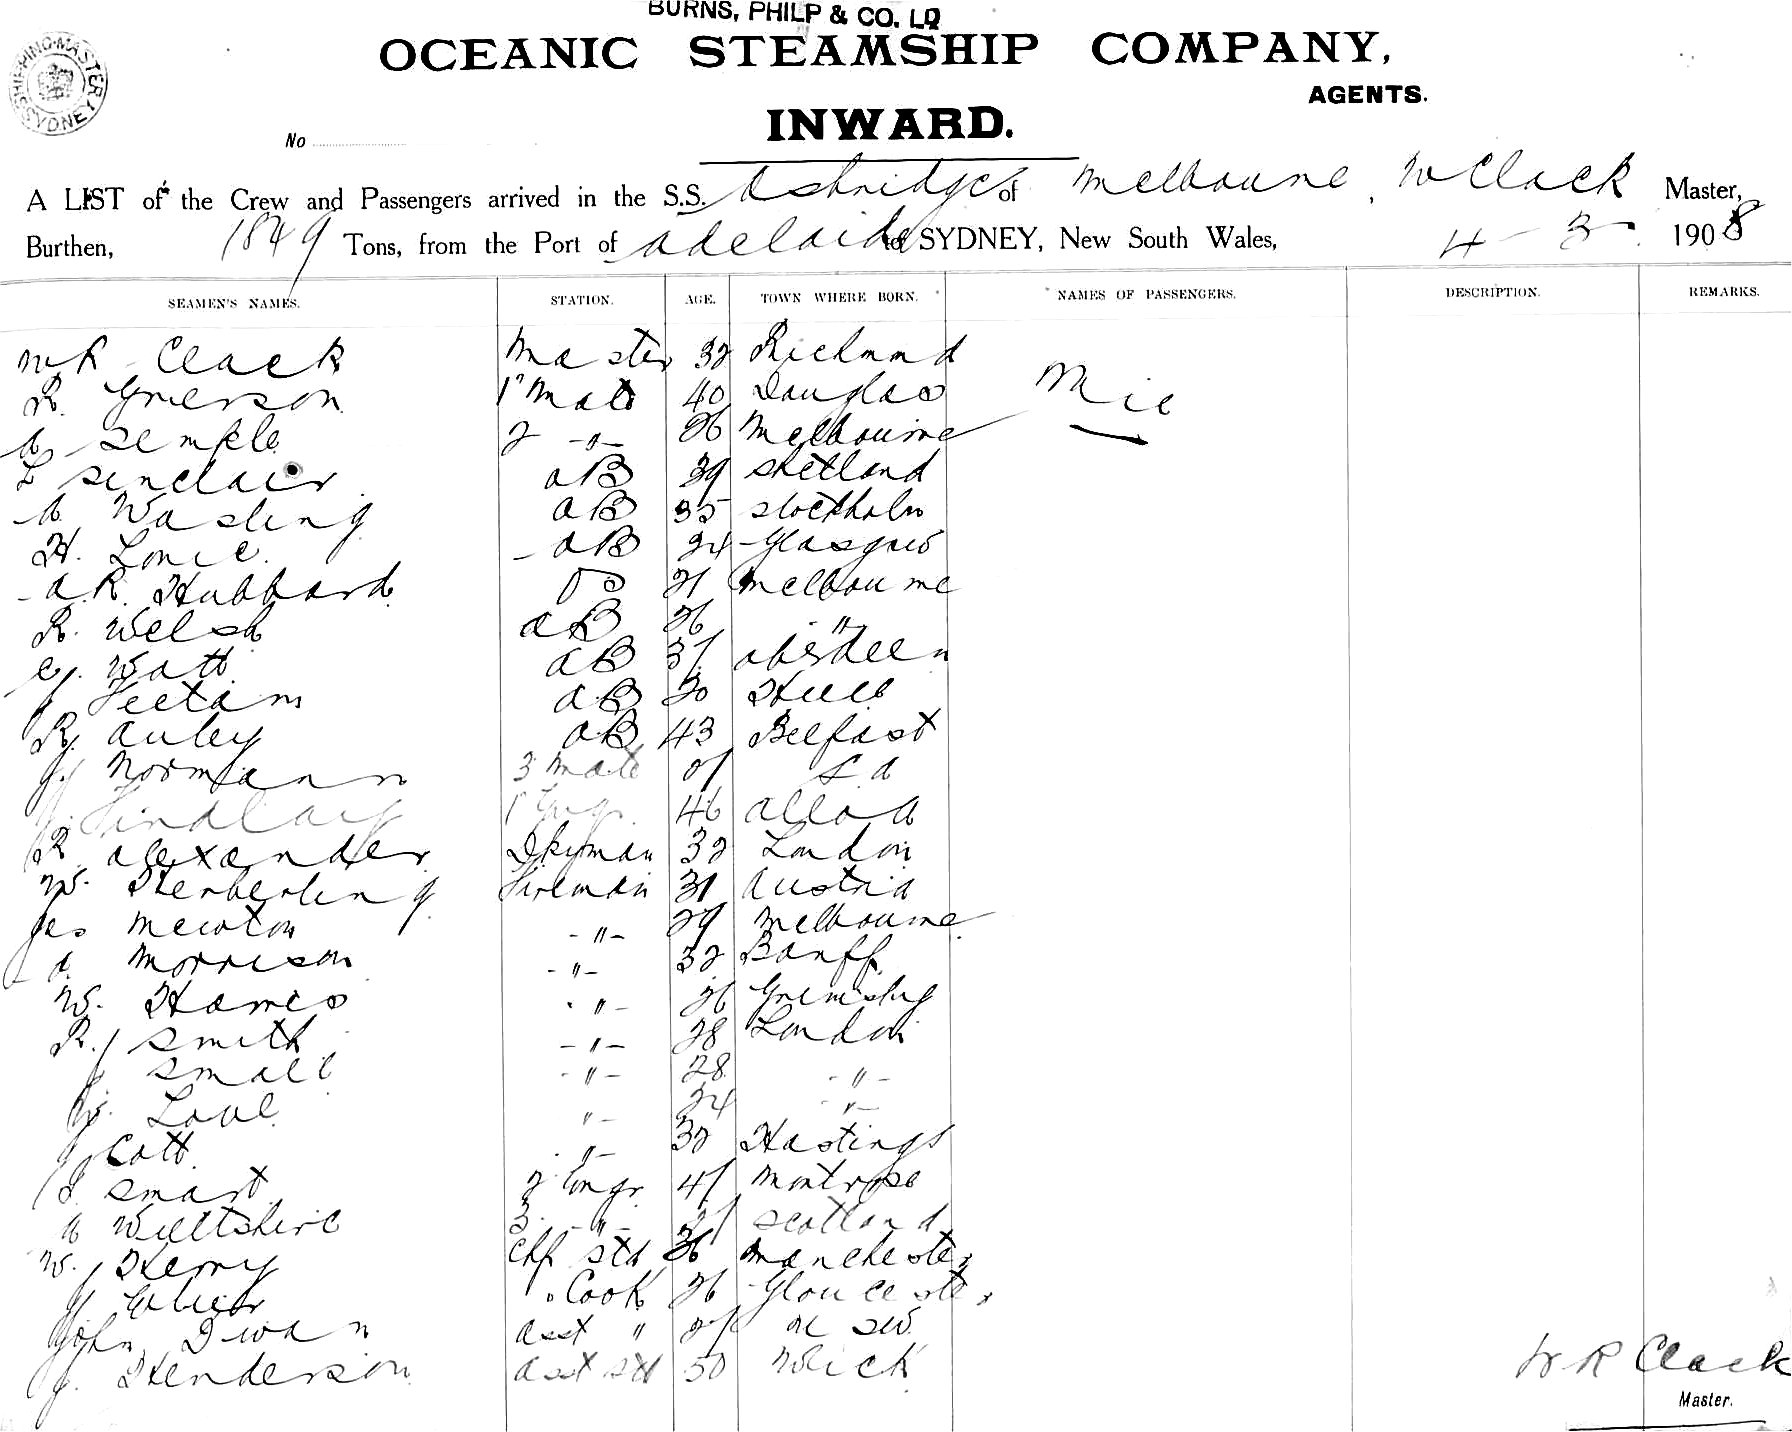 BURNS, PHILP & CO. LD
OCEANIC STEAMSHIP COMPANY,
AGENTS.
SHIPPING MASTER SYDNEY
INWARD.
No
A LIST of the Crew and Passengers arrived in the S.S. Ashridge of Melbourne, W Clack Master,
Burthen, 1849 Tons, from the Port of Adelaide to SYDNEY, New South Wales, 4-3- 1908
SEAMEN'S NAMES. STATION. AGE. TOWN WHERE BORN. NAMES OF PASSENGERS. DESCRIPTION. REMARKS.
W R Clack Master 32 Richmond
R. Grierson 1st Mate 40 Douglas Nil
A Semple 2 -"- 26 Melbourne
L Sinclair AB 39 Shetland
A Wasling AB 35 Stockholm
H. Lonie AB 24 Glasgow
A. R. Hubbard OS 21 Melbourne
R. Welsh AB 26 "
G. Watt AB 37 Aberdeen
J Teetam AB 20 Hull
R. Auley AB 43 Belfast
J Normann 3 Mate 21 S A
J. Findlay 1 Engr. 46 Alloa
R Alexander Dkyman 32 London
W. Herberling Fireman 31 Austria
Jas Newton -"- 29 Melbourne
A. Morrison -"- 32 Banff
W. Hames -"- 26 Grimsby
R. J Smith -"- 28 London
J Small -"- 28 -"-
W. Love "- 24 -"-
J Cott -"- 32 Hastings
J. Smart 2 Engr 41 Montrose
A Wiltshire 3 -"- 27 Scotland
W. J Henry Chf Std 36 Manchester
J. Cook 26 Gloucester
John Diwan Asst " 27 N SW.
J. Henderson Asst Std 50 Wick
W R Clack
Master.